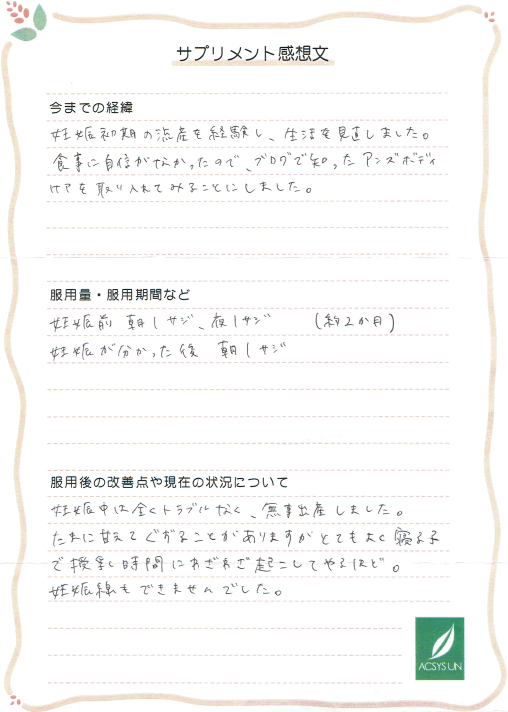 サプリメント感想文
今までの経緯
妊娠初期の流産を経験し、生活を見直しました。
食事に自信がなかったので、ブログで知ったアンズボディ
ケアを取り入れてみることにしました。
服用量・服用期間など
妊娠前 朝1サジ、夜1サジ (約2か月)
妊娠が分かった後 朝1サジ
服用後の改善点や現在の状況について
妊娠中は全くトラブルなく、無事出産しました。
たまに甘えてぐずることがありますがとてもよく寝る子
で授乳時間にわざわざ起こしてやるほど。
妊娠線もできませんでした。
ACSYS UN